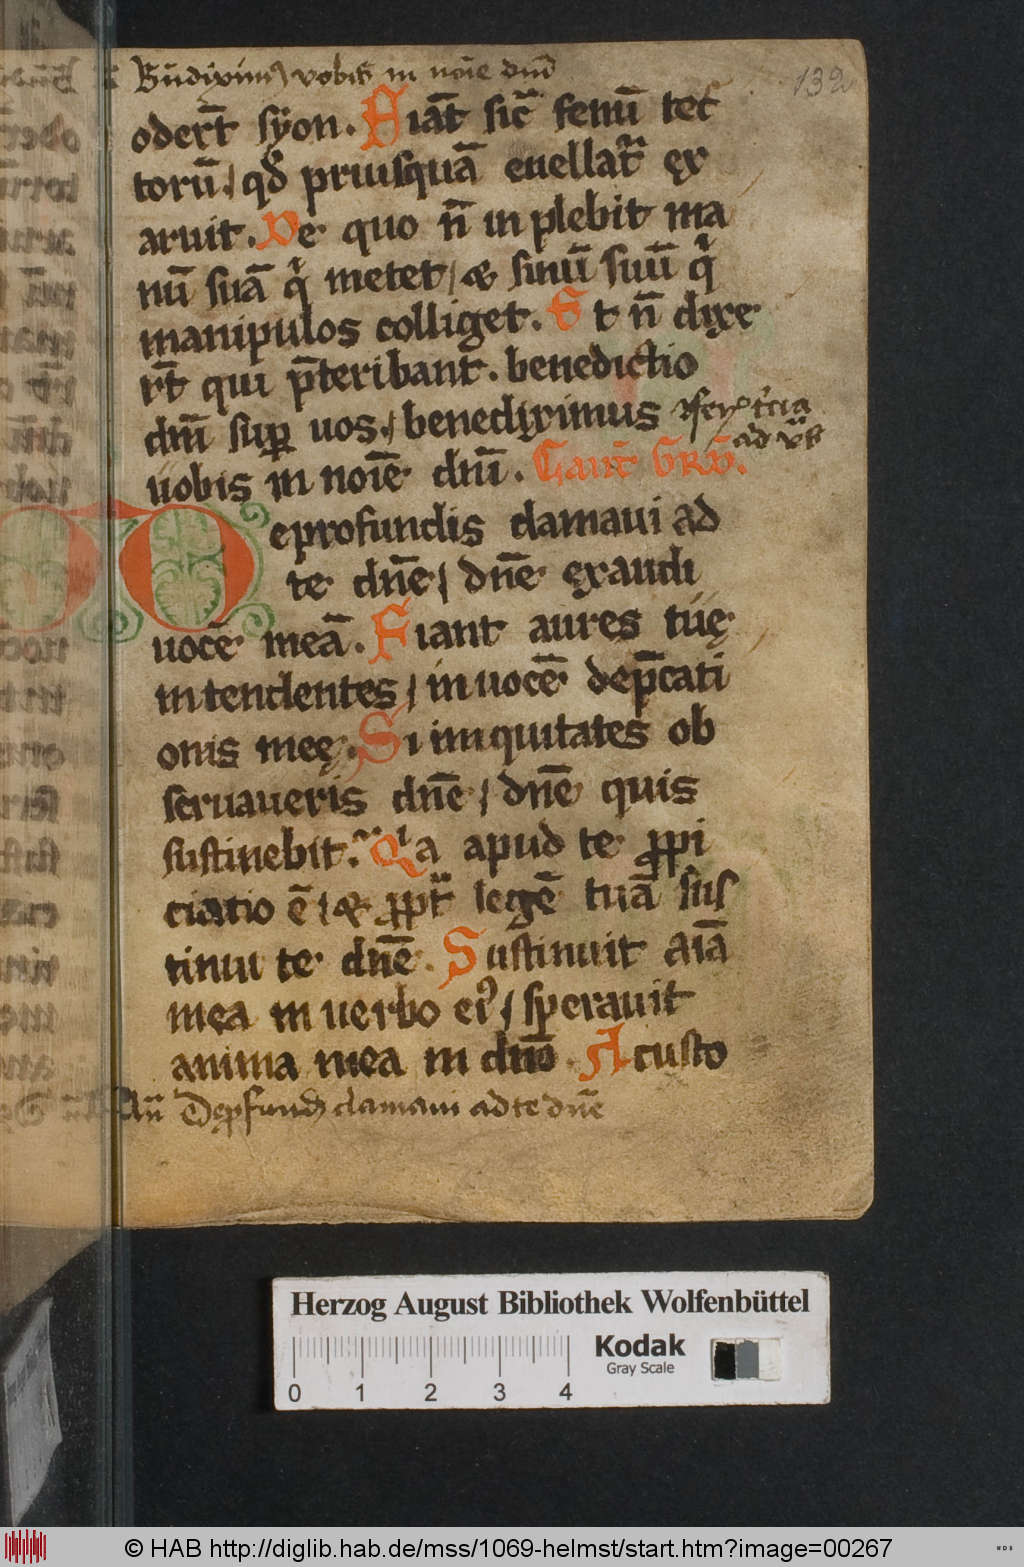 Bn̄diximꝰ vobis in noīe dn̄i
132
odert̄ syon. Fiāt sic̄ fenū tec
torū / qđ priusquā euellat᷑ ex
aruit. De quo n̄ inplebit ma
nū suā qͥ metet / & sinū suū qͥ
manipulos colliget. Et n̄ dixe
rt̄ qui p̄teribant. benedictio
dn̄i suꝑ uos / benediximus
uobis in noīe dn̄i. Cant̄ GRD̄.
ad
De profundis clamaui ad
te dn̄e / dn̄e exaudi
uocē meā. Fiant aures tuę
intendentes / in uocē dep̄cati
onis meę. Si iniquitates ob
seruaueris dn̄e / dn̄e quis
sustinebit. Qͥa apud te ꝓpi
ciatio ē / & ꝓpt᷑ legē tuā sus
tinui te dn̄e. Sustinuit aīa
mea in uerbo eiꝰ / sperauit
anima mea in dn̄o. A custo
An̄ De ꝓfundis clamaui ad te dn̄e
Herzog August Bibliothek Wolfenbüttel
Kodak
Gray Scale
0 1 2 3 4
© HAB http://diglib.hab.de/mss/1069-helmst/start.htm?image=00267